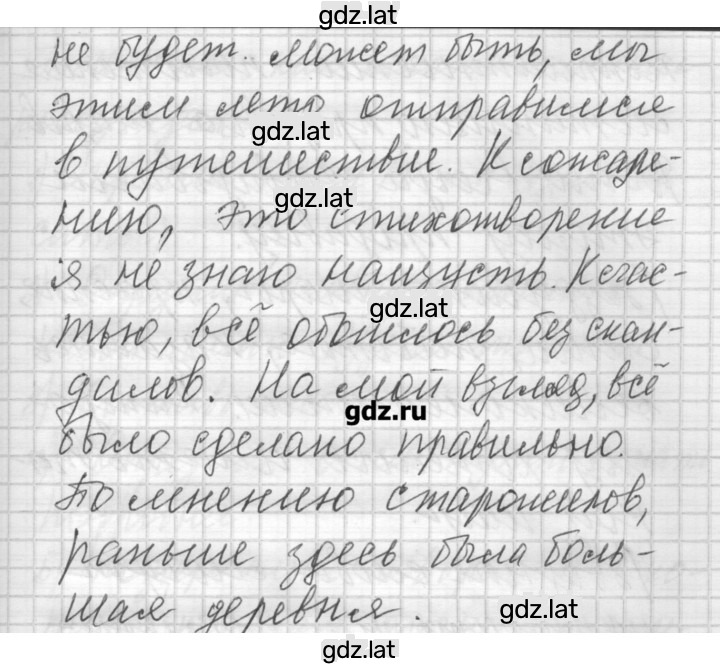 gdz.lat
не будет. Может быть, мы
этим лето отправимся
gdz.lat
в путешествие. К сожале-
gdz.lat
нию, это стихотворение
я не знаю наизусть. К счас-
gdz.lat
тью, всё обошлось без скан-
далов. На мой взгляд, всё
gdz.ru
было сделано правильно.
gdz.lat
По мнению старожилов,
раньше здесь была боль-
шая деревня.
gdz.lat
gdz.lat